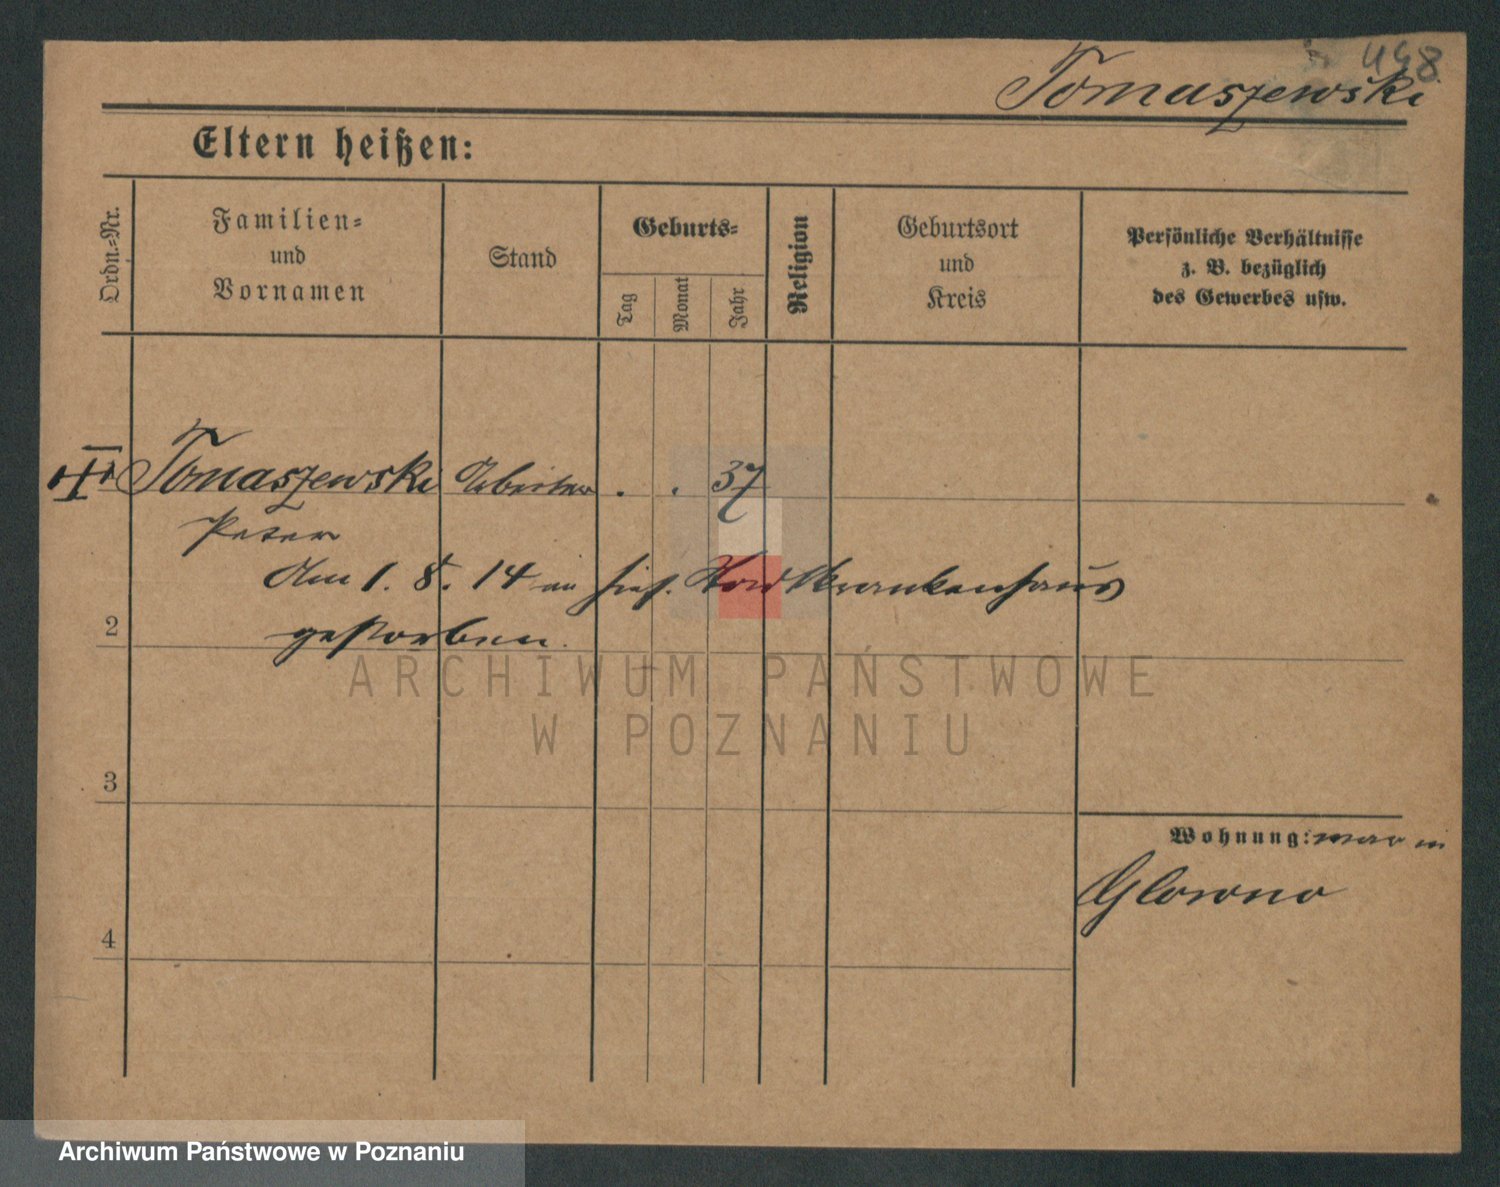 448
Tomaszewski
Eltern heißen:
Ordn.=Nr.
Familien=
und
Vornamen
Stand
Geburts=
Tag
Monat
Jahr
Religion
Geburtsort
und
Kreis
Persönliche Verhältnisse
z. B. bezüglich
des Gewerbes usw.
Tomaszewski Arbeiter . . 37
Peter
Am 1. 8. 14 im hies. Krankenhaus
2
gestorben.
ARCHIWUM PAŃSTWOWE
W POZNANIU
3
Wohnung: war in
Glowno
4
Archiwum Państwowe w Poznaniu